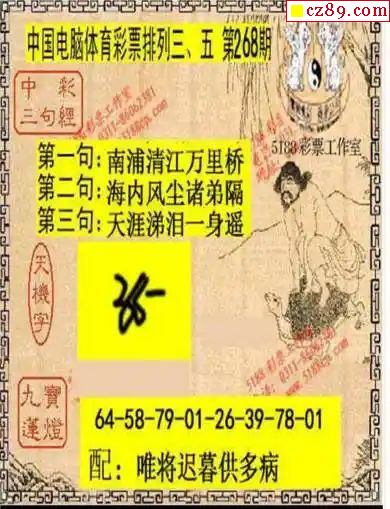 cz89.com
中国电脑体育彩票排列三、五 第268期
中彩
三句經
5188彩票工作室
第一句:南浦清江万里桥
第二句:海内风尘诸弟隔
第三句:天涯涕泪一身遥
天機字
九寶
蓮燈
64-58-79-01-26-39-78-01
配:唯将迟暮供多病